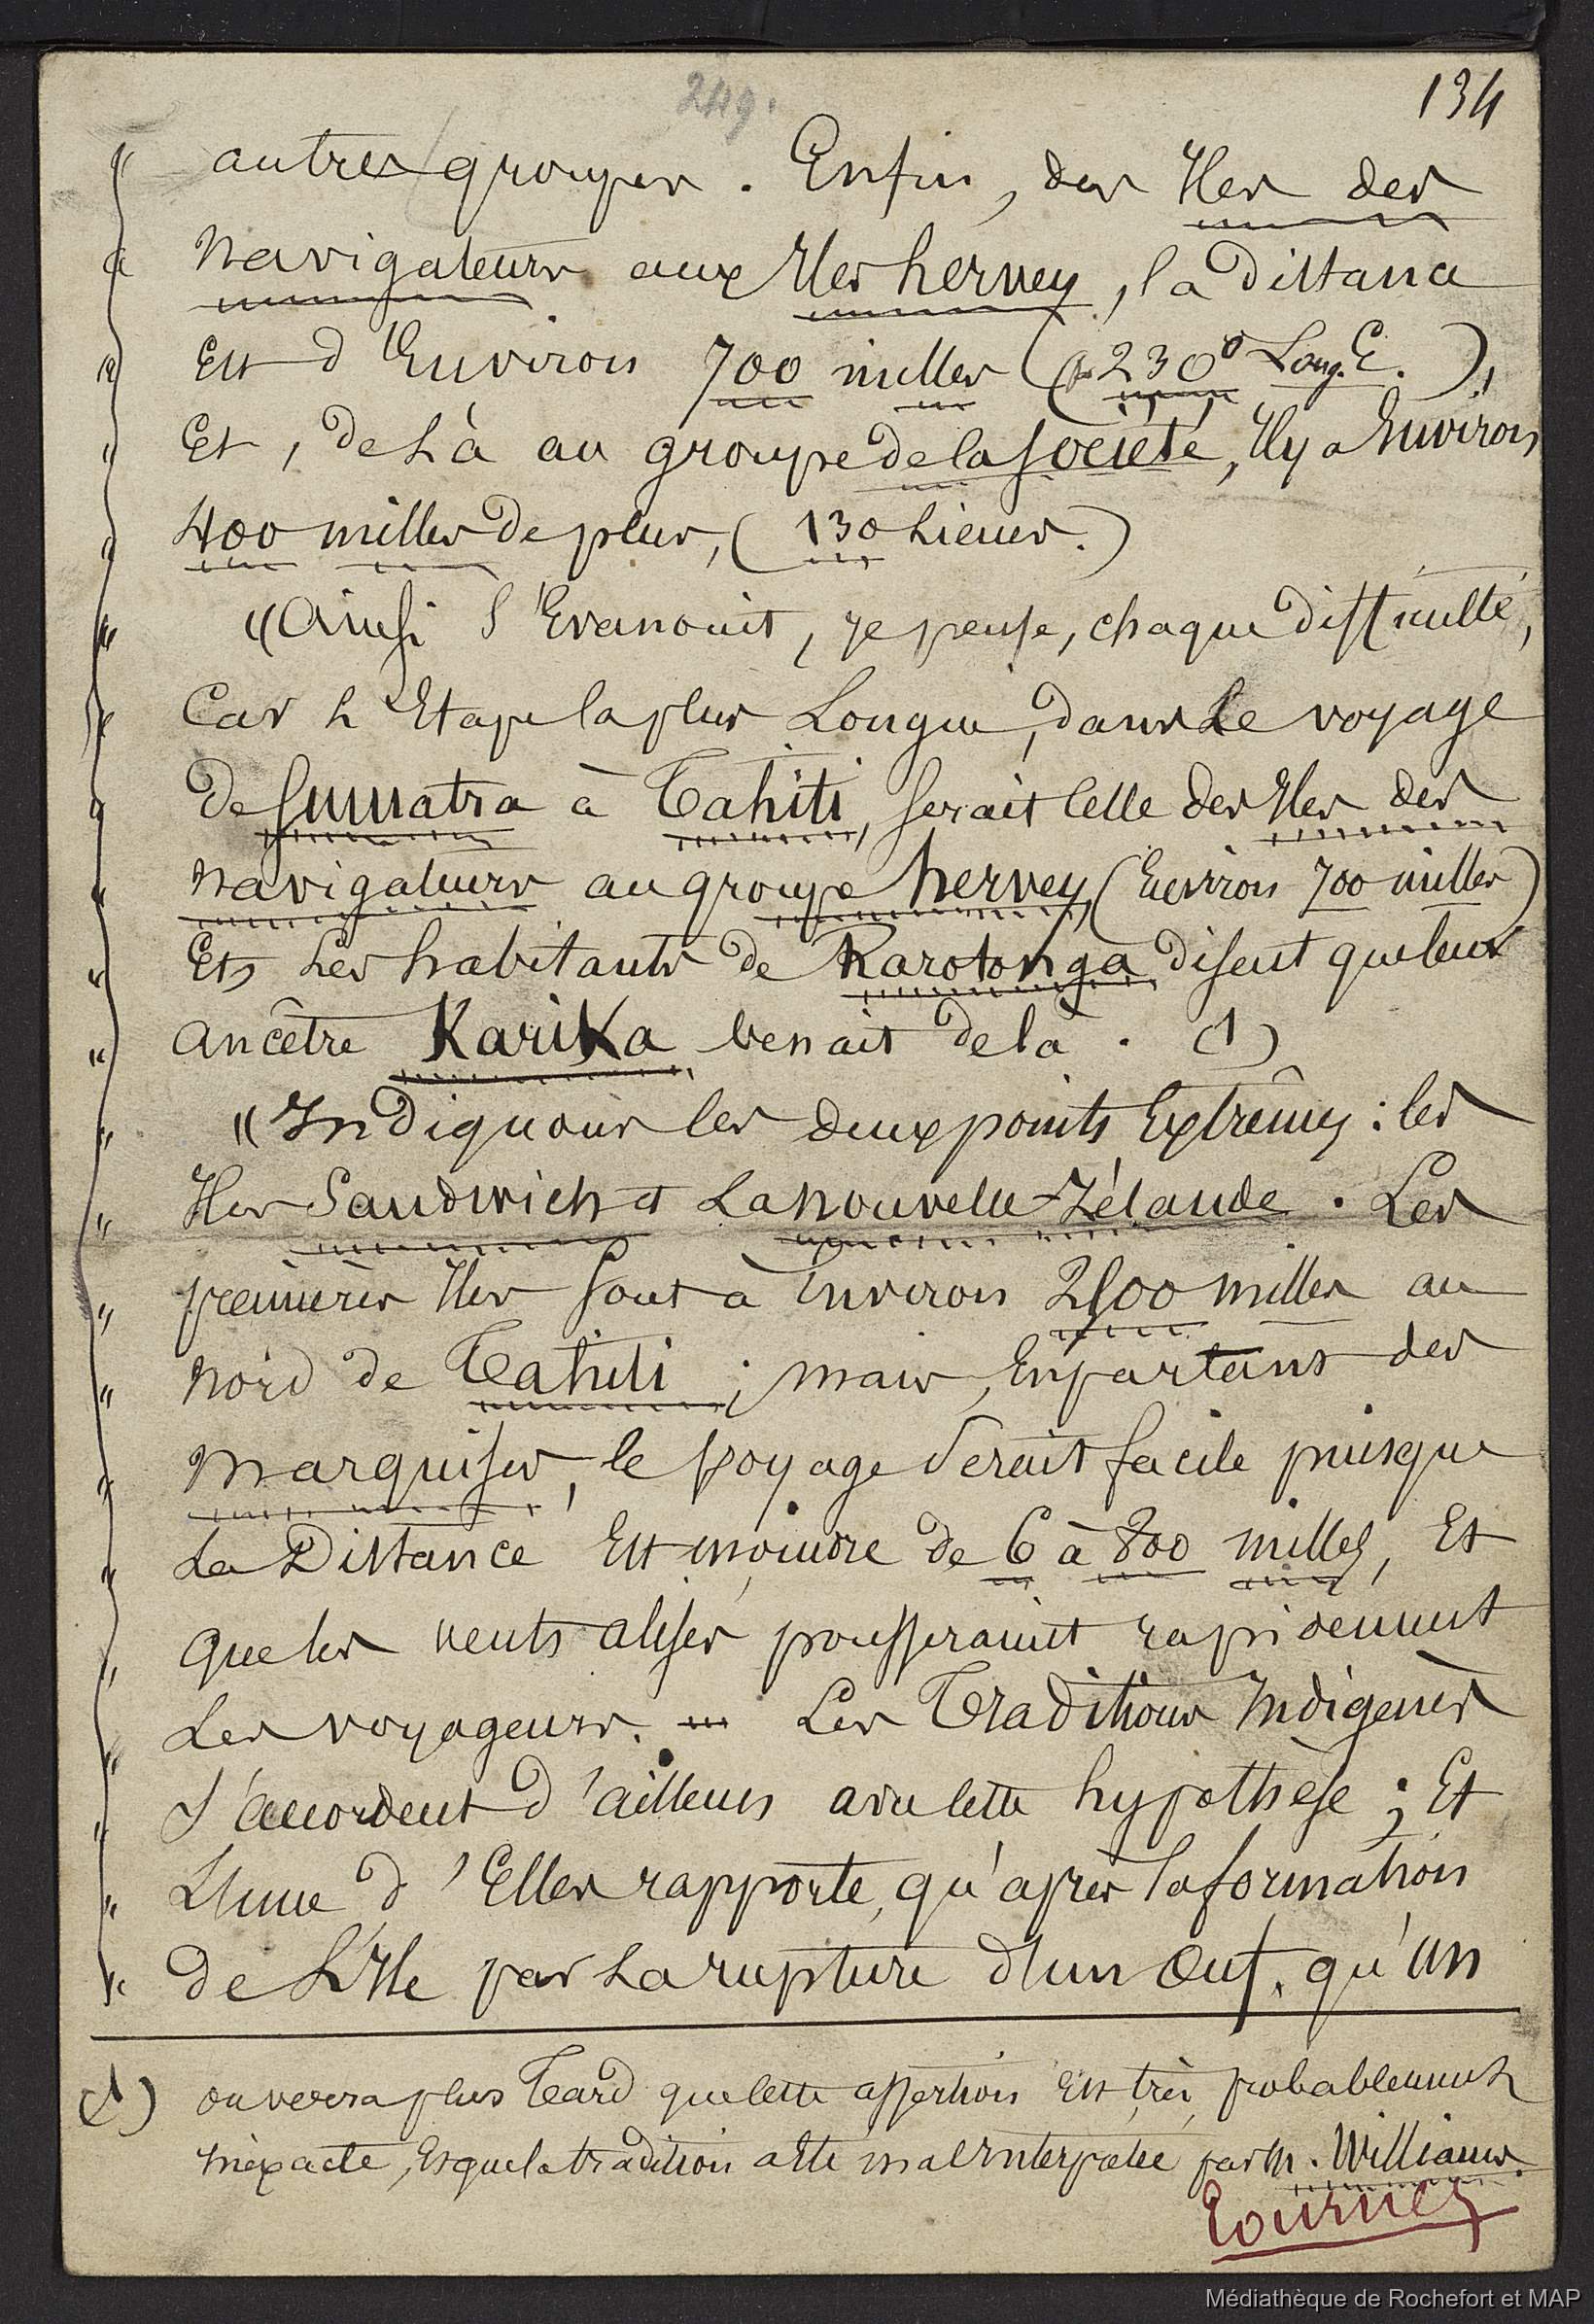 249.
134
autres groupes. Enfin, des Iles des
navigateurs aux Iles hervey, la Distance
Est d'Environ 700 milles (à 230° Long. E.),
Et, de Là au groupe de la société, Il y a Environ
400 milles de plus, (130 Lieues.)
"Ainsi s'Evanouit, je pense, chaque difficulté,
Car L'Etape la plus Longue, dans Le voyage
de Sumatra à Tahiti, serait Celle des Iles des
navigateurs au groupe hervey, (Environ 700 milles)
Et Les habitants de Rarotonga disent que leur
ancêtre Karika venait de là. (1)
"Indiquons les deux points Extrêmes: les
Iles Sandwich et La nouvelle-Zélande. Les
premières Iles sont à Environ 2500 milles au
nord de Tahiti; mais, En partant des
marquises, le voyage serait facile puisque
La Distance Est moindre de 6 à 800 milles, Et
que les vents alisés pousseraient rapidement
Les voyageurs. — Les Traditions Indigènes
s'accordent d'ailleurs avec cette hypothèse; Et
L'une d'Elles rapporte, qu'après la formation
de L'Ile par La rupture d'un Œuf, qu'un
(1) on verra plus Tard que cette assertion Est très probablement
inèxacte, Et que la tradition a Eté mal Interprétée par M. Williams.
Tournez
Médiathèque de Rochefort et MAP